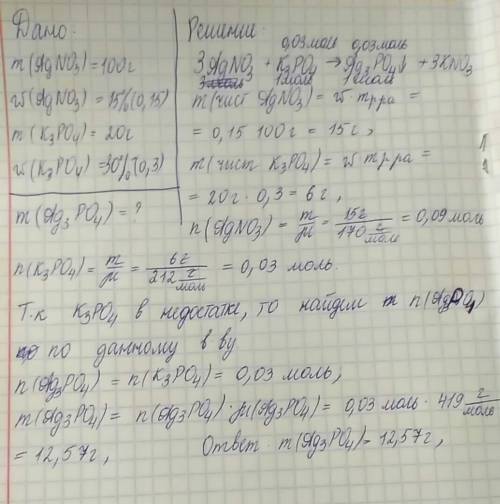 Дано:
m(AgNO3)=100г
w(AgNO3)=15%(0,15)
m(K3PO4)=20г
w(K3PO4)=30%(0,3)
m(Ag3PO4)=?
Решение:
0,03 моль 0,03 моль
3AgNO3 + K3PO4 → Ag3PO4↓ + 3KNO3
3 моль 1 моль 1 моль
m(чист AgNO3) = w · mр-ра =
= 0,15 · 100г = 15г,
m(чист K3PO4) = w · mр-ра =
= 20г · 0,3 = 6г,
n(AgNO3) = m/μ = 15г/170 г/моль = 0,09 моль
n(K3PO4) = m/μ = 6г/212 г/моль = 0,03 моль.
Т.к K3PO4 в недостатке, то найдем n(Ag3PO4)
по данному в ву
n(Ag3PO4) = n(K3PO4) = 0,03 моль,
m(Ag3PO4) = n(Ag3PO4) · μ(Ag3PO4) = 0,03 моль · 419 г/моль
= 12,57г, Ответ: m(Ag3PO4) = 12,57г,